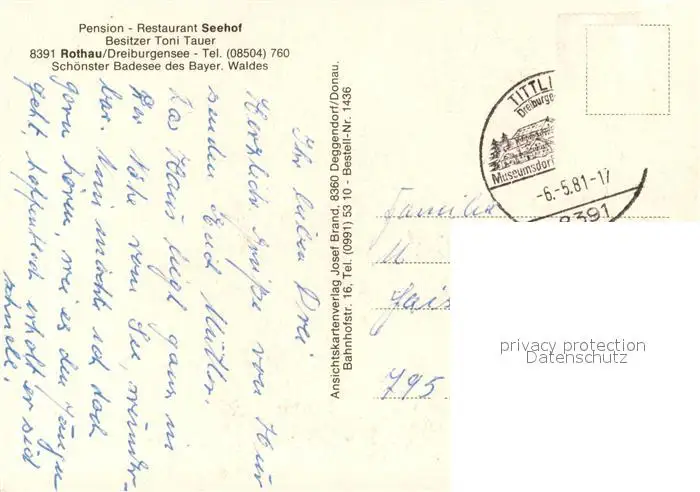 Pension - Restaurant Seehof
Besitzer Toni Tauer
8391 Rothau/Dreiburgensee - Tel. (08504) 760
Schönster Badesee des Bayer. Waldes
Ihr lieben Drei
Herzliche Grüße von hier
senden Euch Mutter.
Das Haus liegt ganz in
der Nähe vom See, wunder-
bar. Nun möcht ich doch
gern hören, wie es dem Jungen
geht, hoffentlich erholt er sich
schnell.
Ansichtskartenverlag Josef Brand, 8360 Deggendorf/Donau.
Bahnhofstr. 16, Tel. (0991) 53 10 - Bestell-Nr. 1436
TITTLI
Dreiburge
Museumsdorf
-6.-5.81-17
8391
Familie
795
privacy protection
Datenschutz